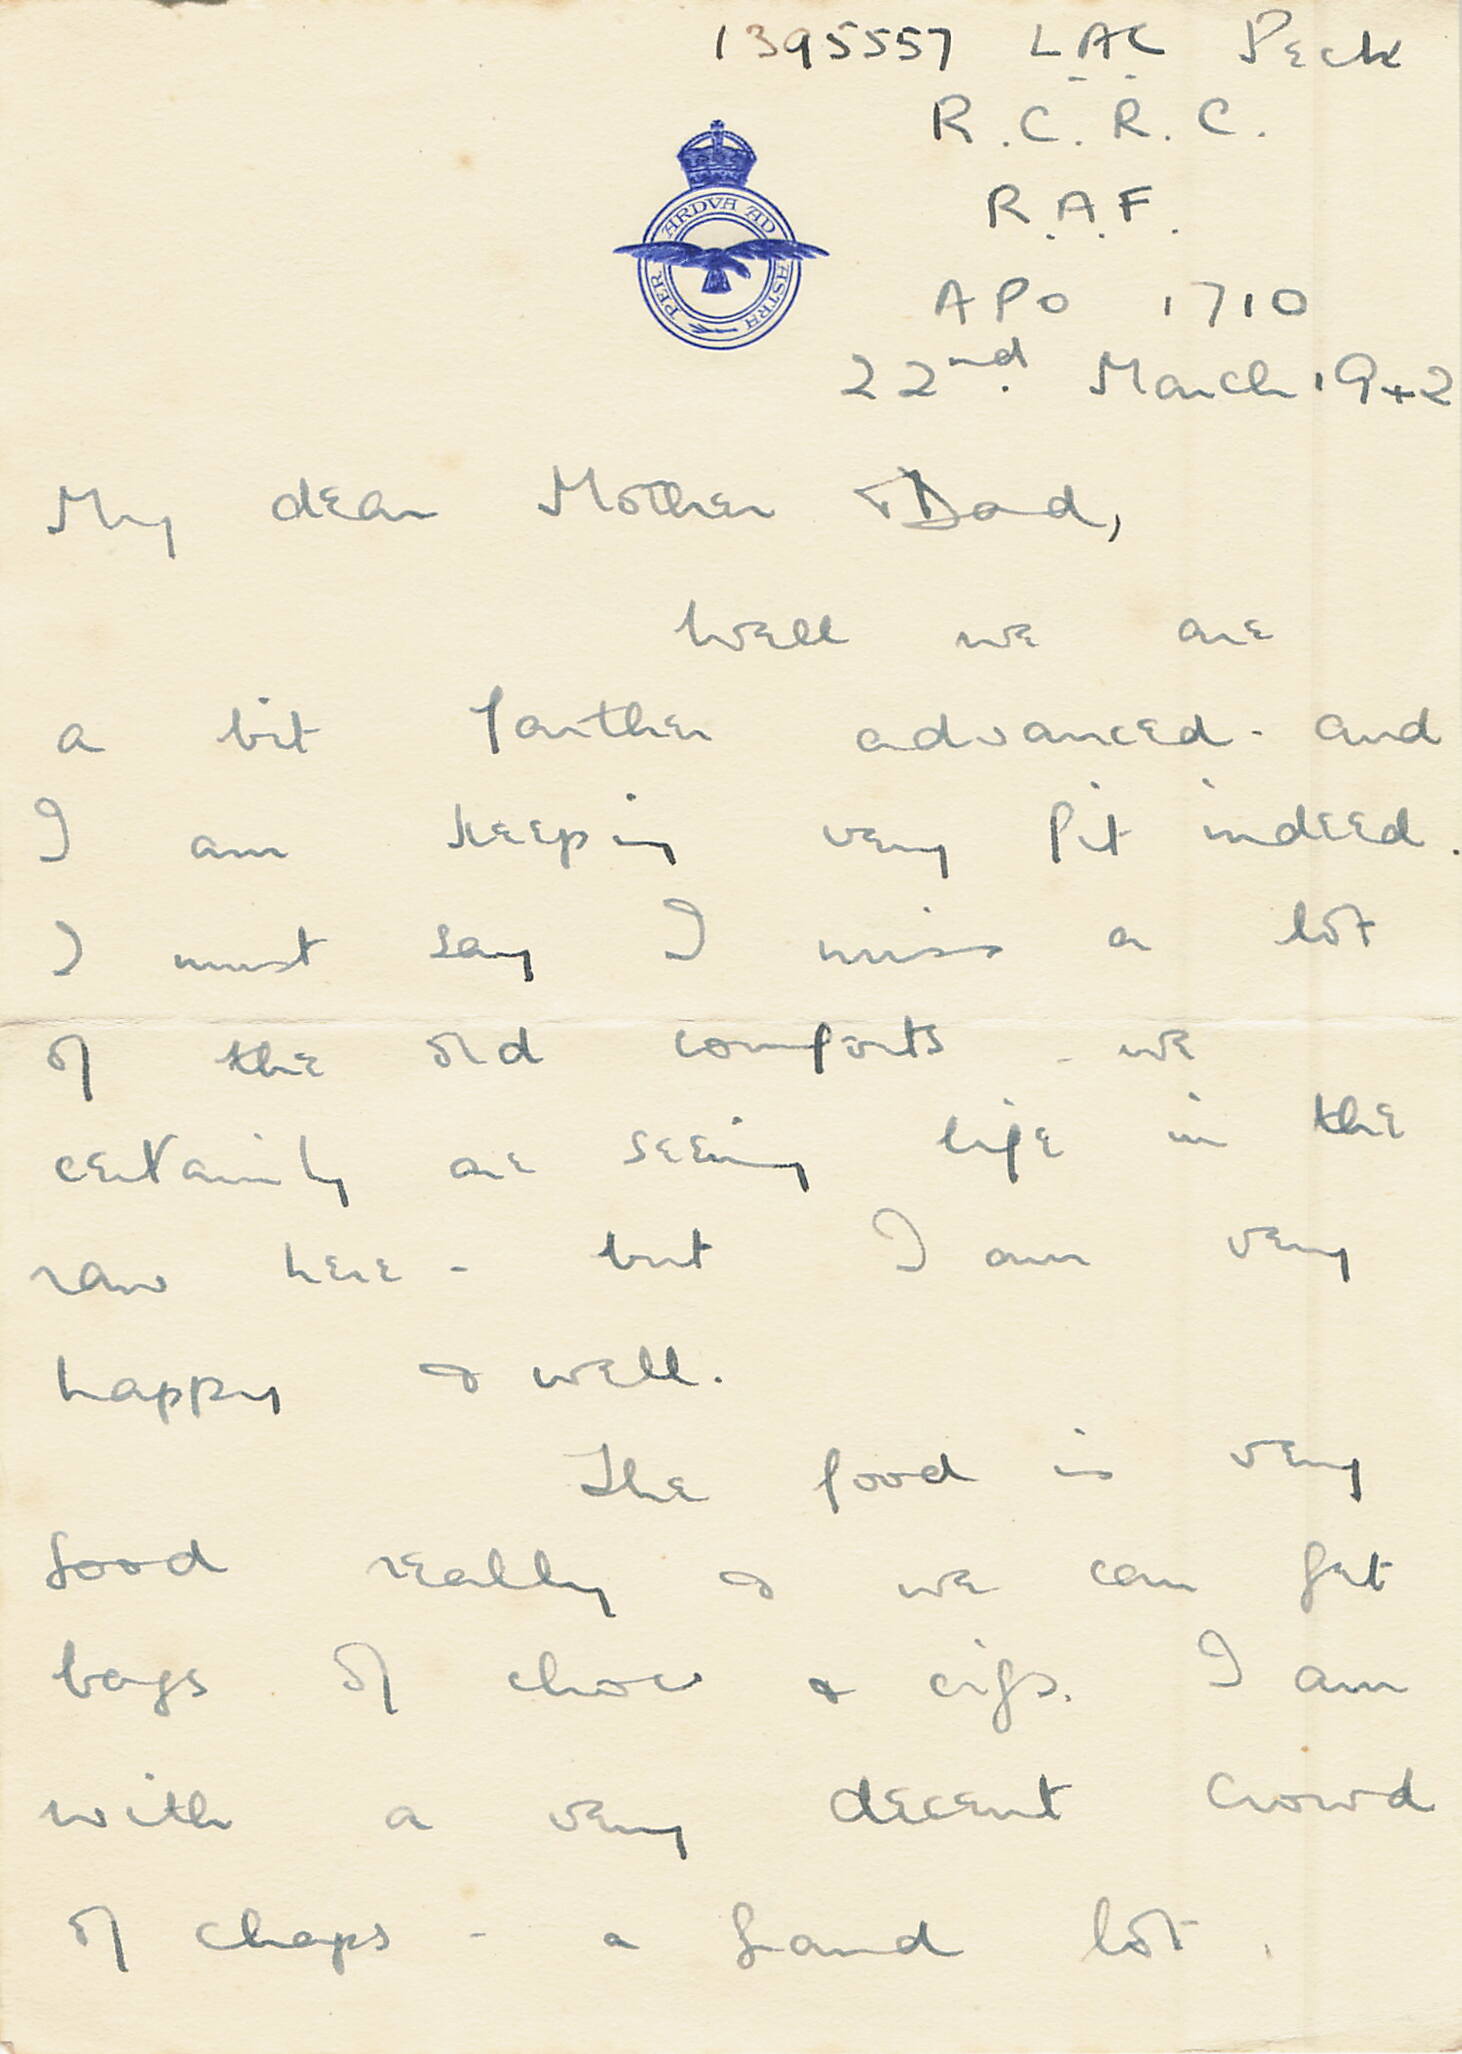 1395557 L.A.C Peck
R.C.R.C.
R.A.F.
PER ARDVA AD ASTRA
APO 1710
22nd. March 1942
My dear Mother & Dad,
Well we are
a bit farther advanced - and
I am keeping very fit indeed.
I must say I miss a lot
of the old comforts - we
certainly are seeing life in the
raw here - but I am very
happy & well.
The food is very
good really & we can get
bags of choc & cigs. I am
with a very decent crowd
of chaps - a grand lot.